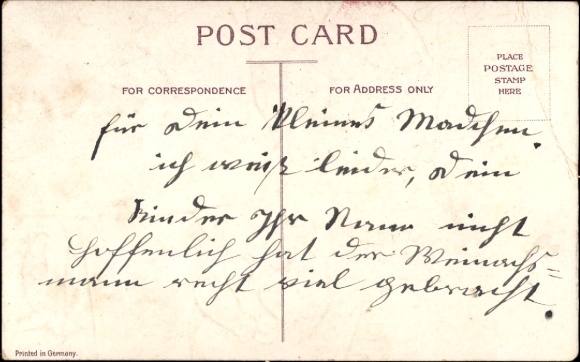 POST CARD
PLACE
POSTAGE
STAMP
HERE
FOR CORRESPONDENCE
FOR ADDRESS ONLY
für dein kleines Madchen.
ich weiß leider, dein
Kinder Ihr Name nicht
hoffenlich hat der Weinachs=
mann recht viel gebracht.
Printed in Germany.